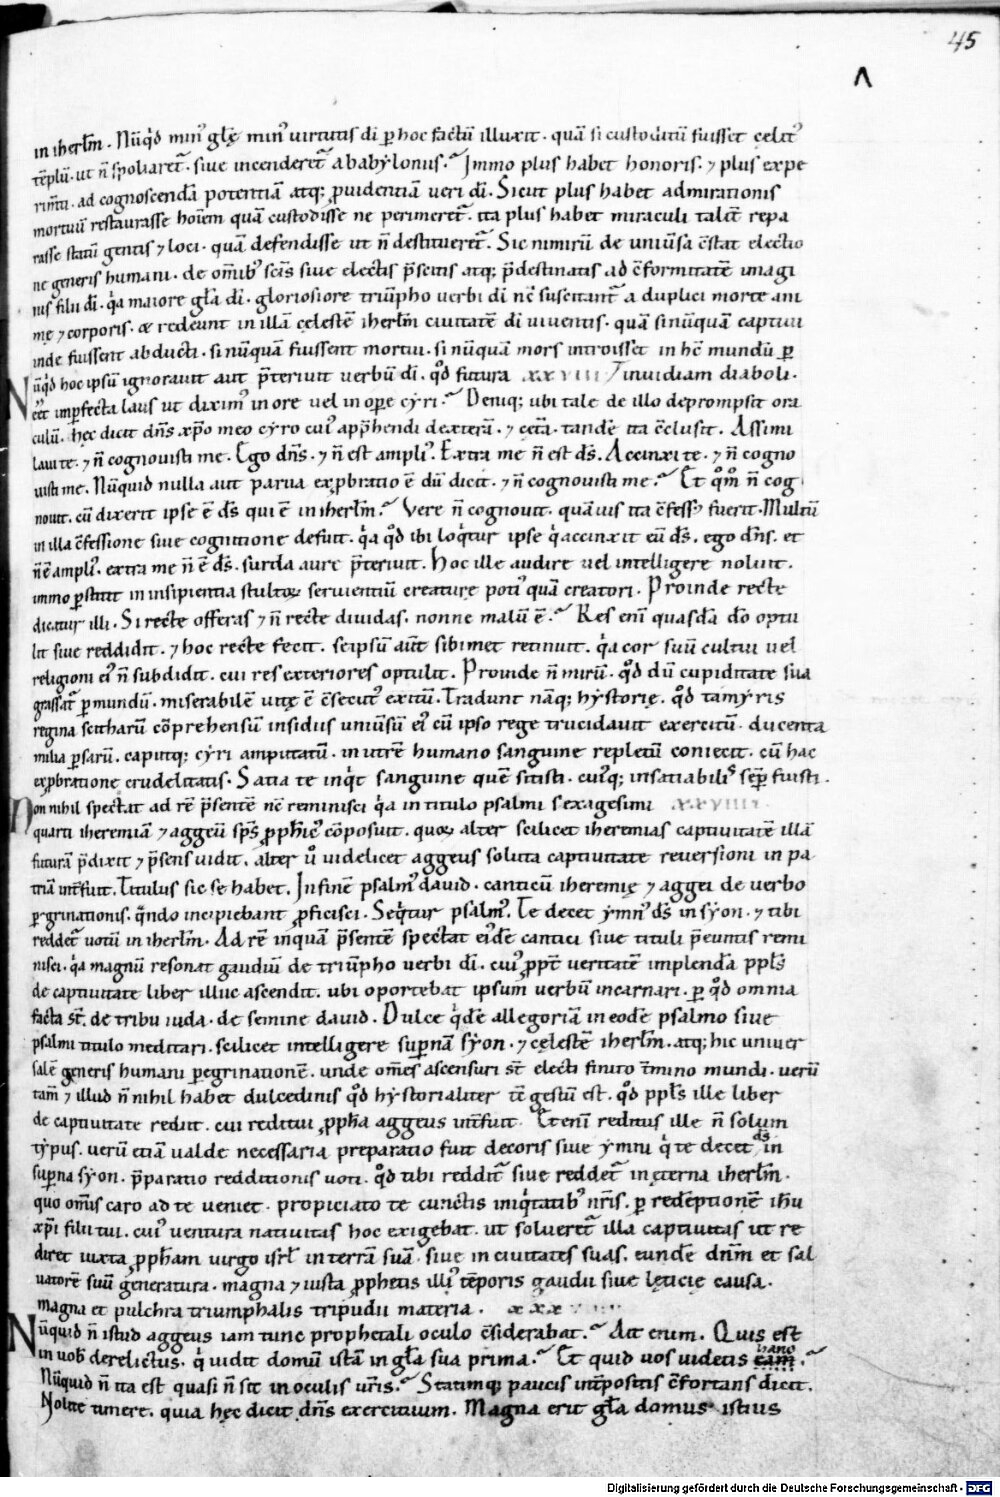 45
in iherl̄m. Nūq̇d min᷒ glę min᷒ uirtutis dī p hoc factū illuxit. quā si custoditū fuisset celit᷒
tēplū. ut n̄ spoliaret᷒. siue incenderet᷒ a babylonus. Immo plus habet honoris. ⁊ plus expe
rim̄tu. ad cognoscendā potentiā atq; ꝓuidentiā ueri dī. Sicut plus habet admirationis
mortuū restaurasse hoīem quā custodisse ne perimeret᷒. ita plus habet miraculi talit̄ repa
rasse statū gentis ⁊ loci. quā defendisse ut n̄ destitueret᷒. Sic nimirū de uniūsa c̄stat electio
ne generis humani. de om̄ib᷒ scīs siue electis p̄scitis atq; p̄destinatis ad c̄formitatē imagi
nis filii dī. q̇a maiore gl̄a dī. gloriosiore triūpho uerbi dī nc̄ suscitant᷒ a duplici morte ani
mę ⁊ corporis. & redeunt in illā celestē iherl̄m ciuitatē dī uiuentis. quā si nūquā captiui
inde fuissent abducti. si nūquā fuissent mortui. si nūquā mors introisset in hc̄ mundū ꝑ
Nūq̇d hoc ipsū ignorauit aut p̄teriuit uerbū dī. qd̄ futura xxviii / inuidiam diaboli.
eēt imꝑfecta laus ut dixim᷒ in ore uel in ope cyri. Deniq; ubi tale de illo deprompsit ora
culū. hęc dicit dn̄s xp̄o meo cyro cui᷒ app̄hendi dexterā. ⁊ cet̄a. tandē ita c̄clusit. Assimi
laui te. ⁊ n̄ cognouisti me. Ego dn̄s. ⁊ n̄ est ampli᷒. Extra me n̄ est ds̄. Accinxi te. ⁊ n̄ cogno
uisti me. Nūquid nulla aut parua exꝓbratio ē dū dicit. ⁊ n̄ cognouisti me. Et qm̄ n̄ cog
nouit. cū dixerit ipse ē ds̄ qui ē in iherl̄m. Vere n̄ cognouit. quāuis ita c̄fess᷒ fuerit. Multū
in illa c̄fessione siue cognitione defuit. q̇a qd̄ ibi loq̇tur ipse q̇ accinxit eū ds̄. ego dn̄s. et
n̄ ē ampli᷒. extra me n̄ ē ds̄. surda aure p̄teriuit. Hoc ille audire uel intelligere noluit.
immo ꝑstitit in insipientia stultoꝝ seruientiū creaturę poti᷒ quā creatori. Proinde recte
dicatur illi. Si recte offeras ⁊ n̄ recte diuidas. nonne malū ē. Res enī quasdā do optu
lit siue reddidit. ⁊ hoc recte fecit. seipsū aūt sibimet retinuit. q̇a cor suū cultui uel
religioni ei᷒ n̄ subdidit. cui res exteriores optulit. Proinde n̄ mirū. qd̄ dū cupiditate sua
grassat᷒ ꝑ mundū. miserabilē uitę ē c̄secut᷒ exitū. Tradunt nāq; hystorię. qd̄ tamyris
regina scitharū cōprehensū insidiis uniūsū ei᷒ cū ipso rege trucidauit exercitū. ducenta
milia ꝑsarū. caputq; cyri amputatū. in utrē humano sanguine repletū coniecit. cū hac
exꝓbratione crudelitatis. Satia te inq̇t sanguine quē sitisti. cui᷒q; insatiabilis semꝑ fuisti.
Non nihil spectat ad rē p̄sentē nc̄ reminisci q̇a in titulo psalmi sexagesimi xxviiii.
quarti iheremiā ⁊ aggeū sps̄ ꝓph̄ic᷒ cōposuit. quoꝝ alter scilicet iheremias captiuitatē illā
futurā p̄dixit ⁊ p̄sens uidit. alter ū uidelicet aggeus soluta captiuitate reuersioni in pa
triā int̄fuit. Titulus sic se habet. In finē psalm᷒ dauid. canticū iheremię ⁊ aggei de uerbo
ꝑgrinationis. qn̄do incipiebant ꝓficisci. Seq̇tur psalm᷒. Te decet ymn᷒ ds̄ in syon. ⁊ tibi
reddet᷒ uotū in iherl̄m. Ad rē inquā p̄sentē spectat ei᷒dē cantici siue tituli p̄euntis remi
nisci. q̇a magnū resonat gaudiū de triūpho uerbi dī. cui᷒ ꝓpt̄ ueritatē implendā ppl̄s
de captiuitate liber illuc ascendit. ubi oportebat ipsum uerbū incarnari. ꝑ qd̄ omnia
facta st̄. de tribu iuda. de semine dauid. Dulce q̇dē allegoriā in eodē psalmo siue
psalmi titulo meditari. scilicet intelligere supnā syon. ⁊ celestē iherl̄m. atq; hic uniuer
salē generis humani ꝑegrinationē. unde om̄es ascensuri st̄ electi finito t̄mino mundi. uerū
tam̄ ⁊ illud n̄ nihil habet dulcedinis qd̄ hystorialiter tc̄ gestū est. qd̄ ppl̄s ille liber
de captiuitate rediit. cui reditui ꝓph̄a aggeus int̄fuit. Etenī reditus ille n̄ solum
typus. uerū etiā ualde necessaria preparatio fuit decoris siue ymni q̇ te decet ds̄ in
supna syon. p̄paratio redditionis uoti. qd̄ tibi reddit᷒ siue reddet᷒ in ęterna iherl̄m.
quo om̄is caro ad te ueniet. propiciato te cunctis iniq̇tatib᷒ nr̄is. ꝑ redēptionē ih̄u
xp̄i filii tui. cui᷒ uentura natiuitas hoc exigebat. ut solueret᷒ illa captiuitas ut re
diret iuxta ꝓph̄am uirgo isrl̄ in terrā suā. siue in ciuitates suas. eundē dn̄m et sal
uatorē suū generatura. magna ⁊ iusta ꝓphetis illi᷒ tēporis gaudii siue lęticię causa.
magna et pulchra triumphalis tripudii materia. xxx
Nūquid n̄ istud aggeus iam tunc prophetali oculo c̄siderabat. Ait enim. Quis est
in uob̄ derelictus. q̇ uidit domū istā in gl̄a sua prima. Et quid uos uidetis hanc eam.
Nūquid n̄ ita est quasi n̄ sit in oculis ur̄is. Statimq; paucis int̄positis c̄fortans dicit.
Nolite timere. quia hęc dicit dn̄s exercituum. Magna erit gl̄a domus istius
Digitalisierung gefördert durch die Deutsche Forschungsgemeinschaft - DFG